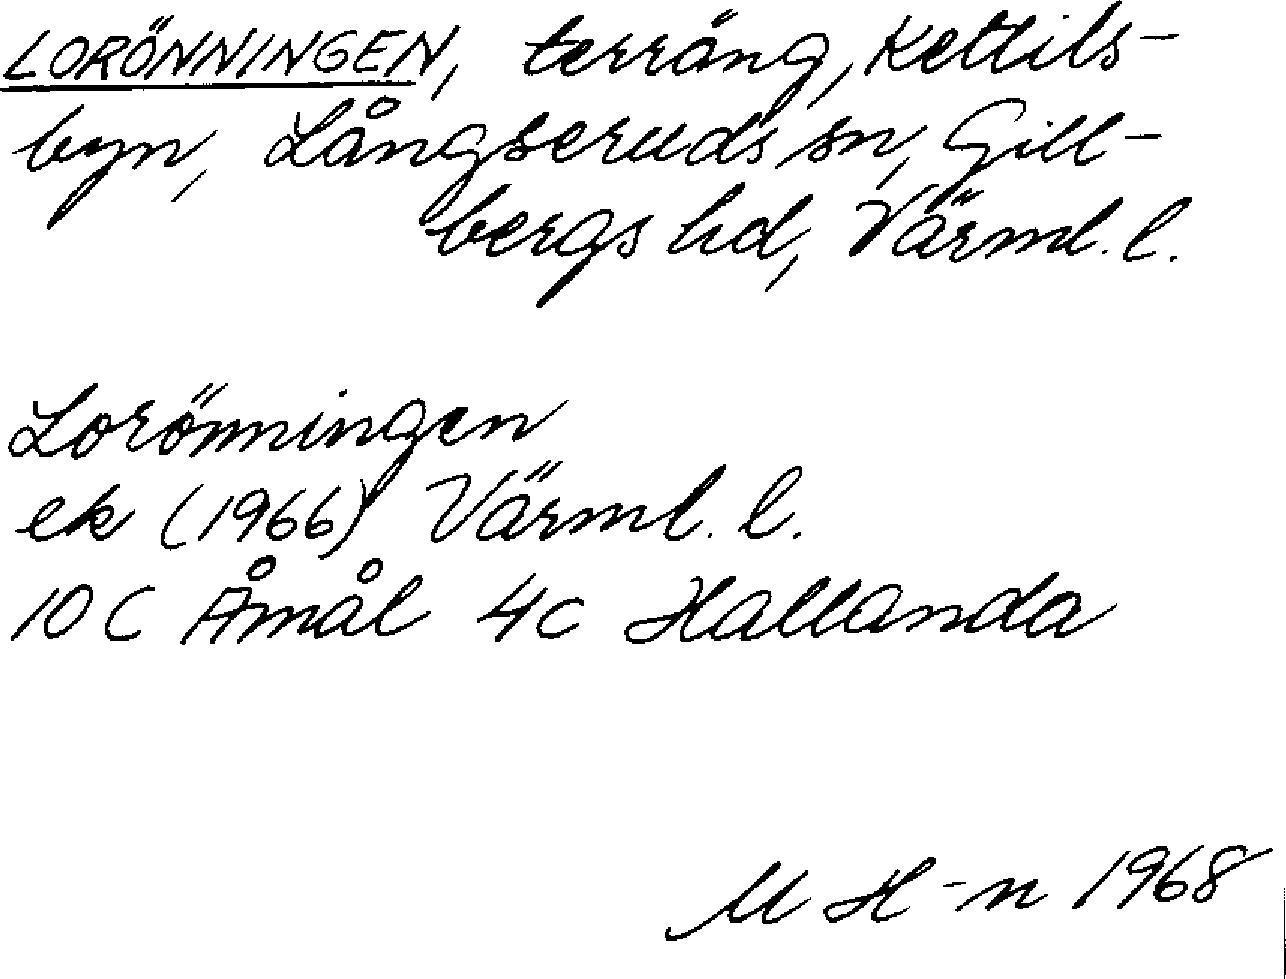 LORÖNNINGEN, terräng, Kettils-
byn, Långseruds sn, Gill-
bergs hd, Värml. l.
Lorönningen
ek (1966) Värml. l.
10 C Åmål 4c Hallanda
M H-n 1968